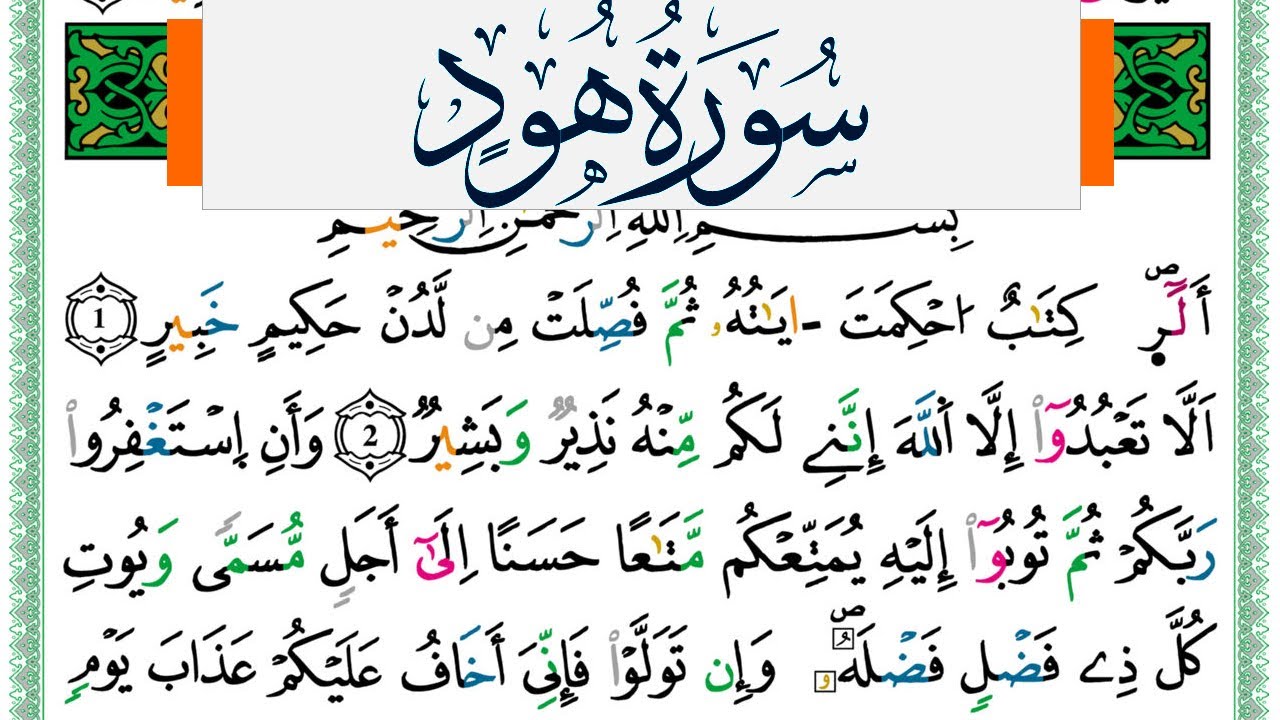 سُورَةُ هُودٍ
بِسْمِ اِللَّهِ اِلرَّحْمَٰنِ اِلرَّحِيمِ
أَلَٓرۖ كِتَٰبٌ اُحْكِمَتَ اٰيَٰتُهُۥ ثُمَّ فُصِّلَتْ مِن لَّدُنْ حَكِيمٍ خَبِيرٍ 1
اَلَّا تَعْبُدُوٓاْ إِلَّا اَللَّهَ إِنَّنِے لَكُم مِّنْهُ نَذِيرٌ وَبَشِيرٌ 2 وَأَنِ اِسْتَغْفِرُواْ
رَبَّكُمْ ثُمَّ تُوبُوٓاْ إِلَيْهِ يُمَتِّعْكُم مَّتَٰعًا حَسَنًا اِلَىٰٓ أَجَلٍ مُّسَمًّى وَيُوتِ
كُلَّ ذِے فَضْلٍ فَضْلَهُۥۖ وَإِن تَوَلَّوْاْ فَإِنِّيَ أَخَافُ عَلَيْكُمْ عَذَابَ يَوْمٍ